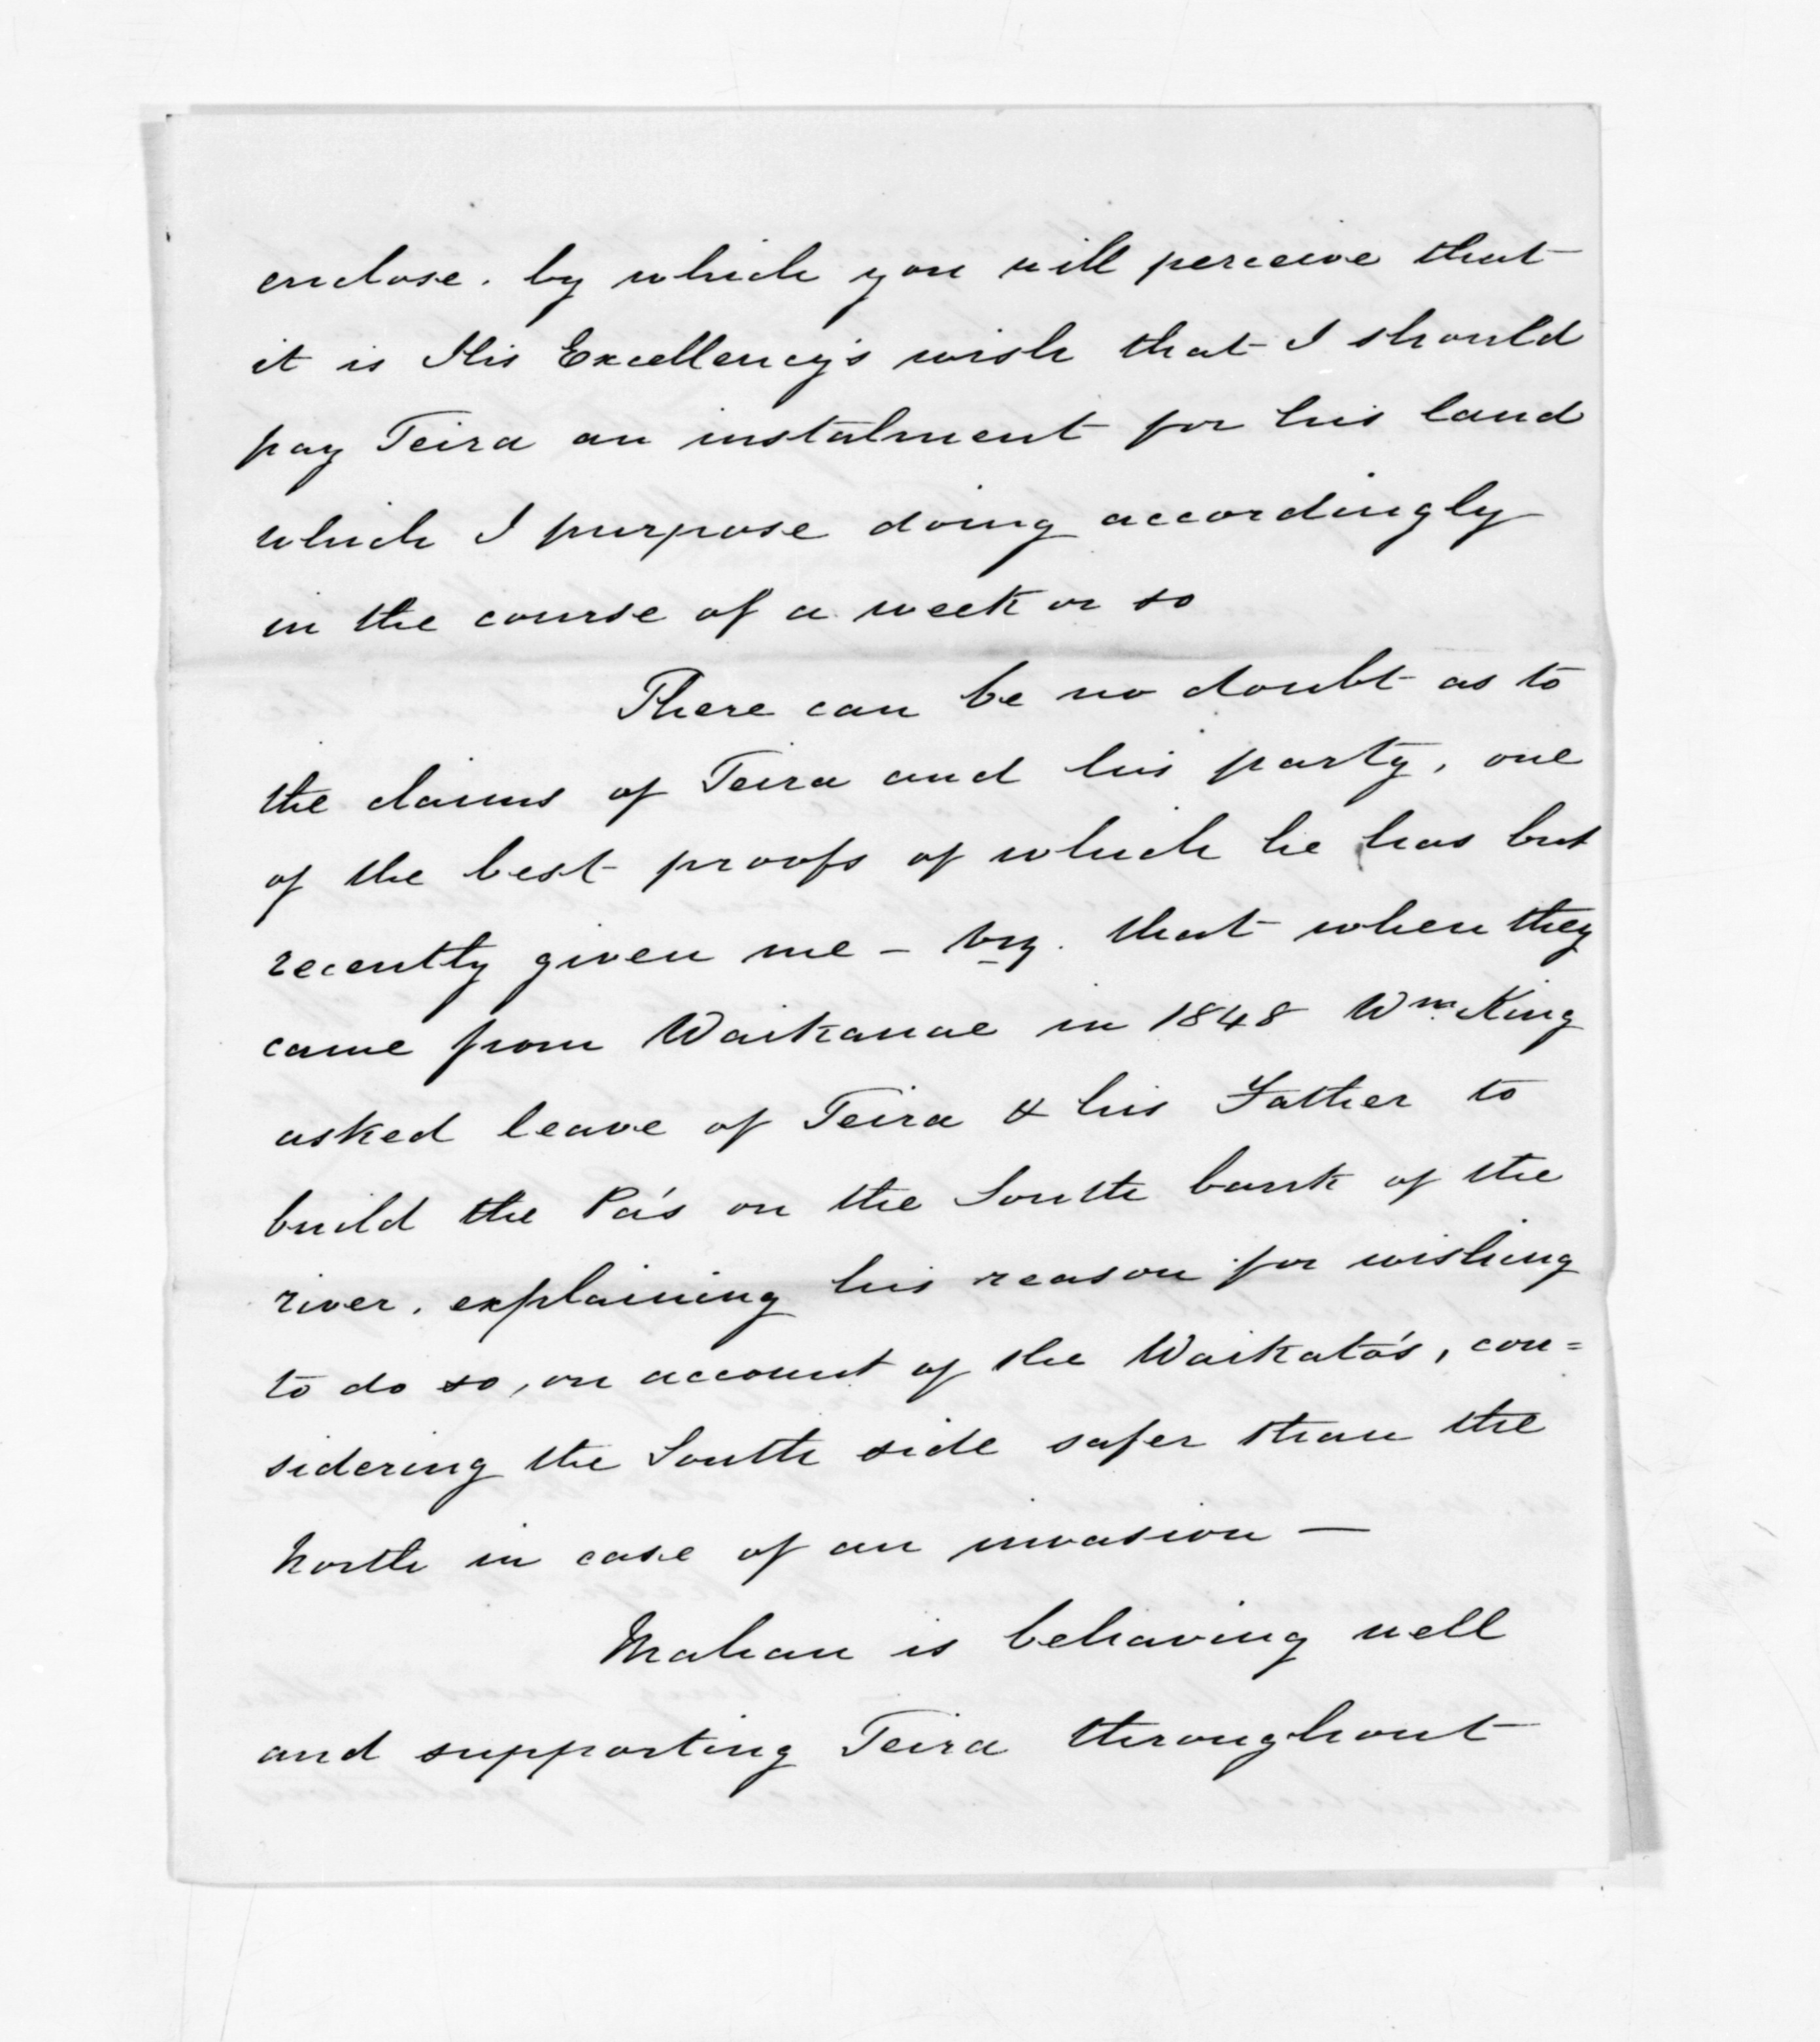 enclose. by which you will perceive that
it is His Excellency's wish that I should
pay Teira an instalment for his land
which I purpose doing accordingly
in the course of a week or so
There can be no doubt as to
the claims of Teira and his party, one
of the best proofs of which he has but
recently given me – viz. that when they
came from Waikanae in 1848 Wm. King
asked leave of Teira & his Father to
build the Pa's on the South bank of the
river, explaining his reason for wishing
to do so, on account of the Waikato's, con=
sidering the South side safer than the
North in case of an invasion —
Mahau is behaving well
and supporting Teira throughout